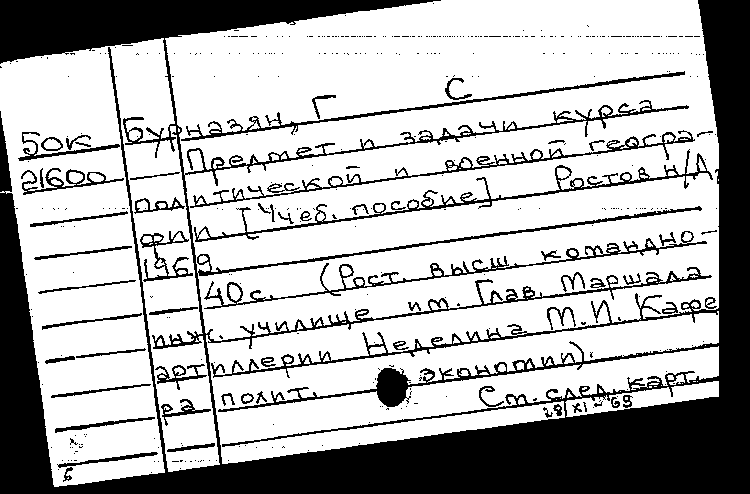 50к Бурназян, Г С
21600 Предмет и задачи курса
политической и военной геогра-
фии. [Учеб. пособие]. Ростов н/Д,
1969.
40 с. (Рост. высш. командно-
инж. училище им. Глав. Маршала
артиллерии Неделина М.И. Кафе
ра полит. экономии).
См. след. карт.
28/XI-69
6